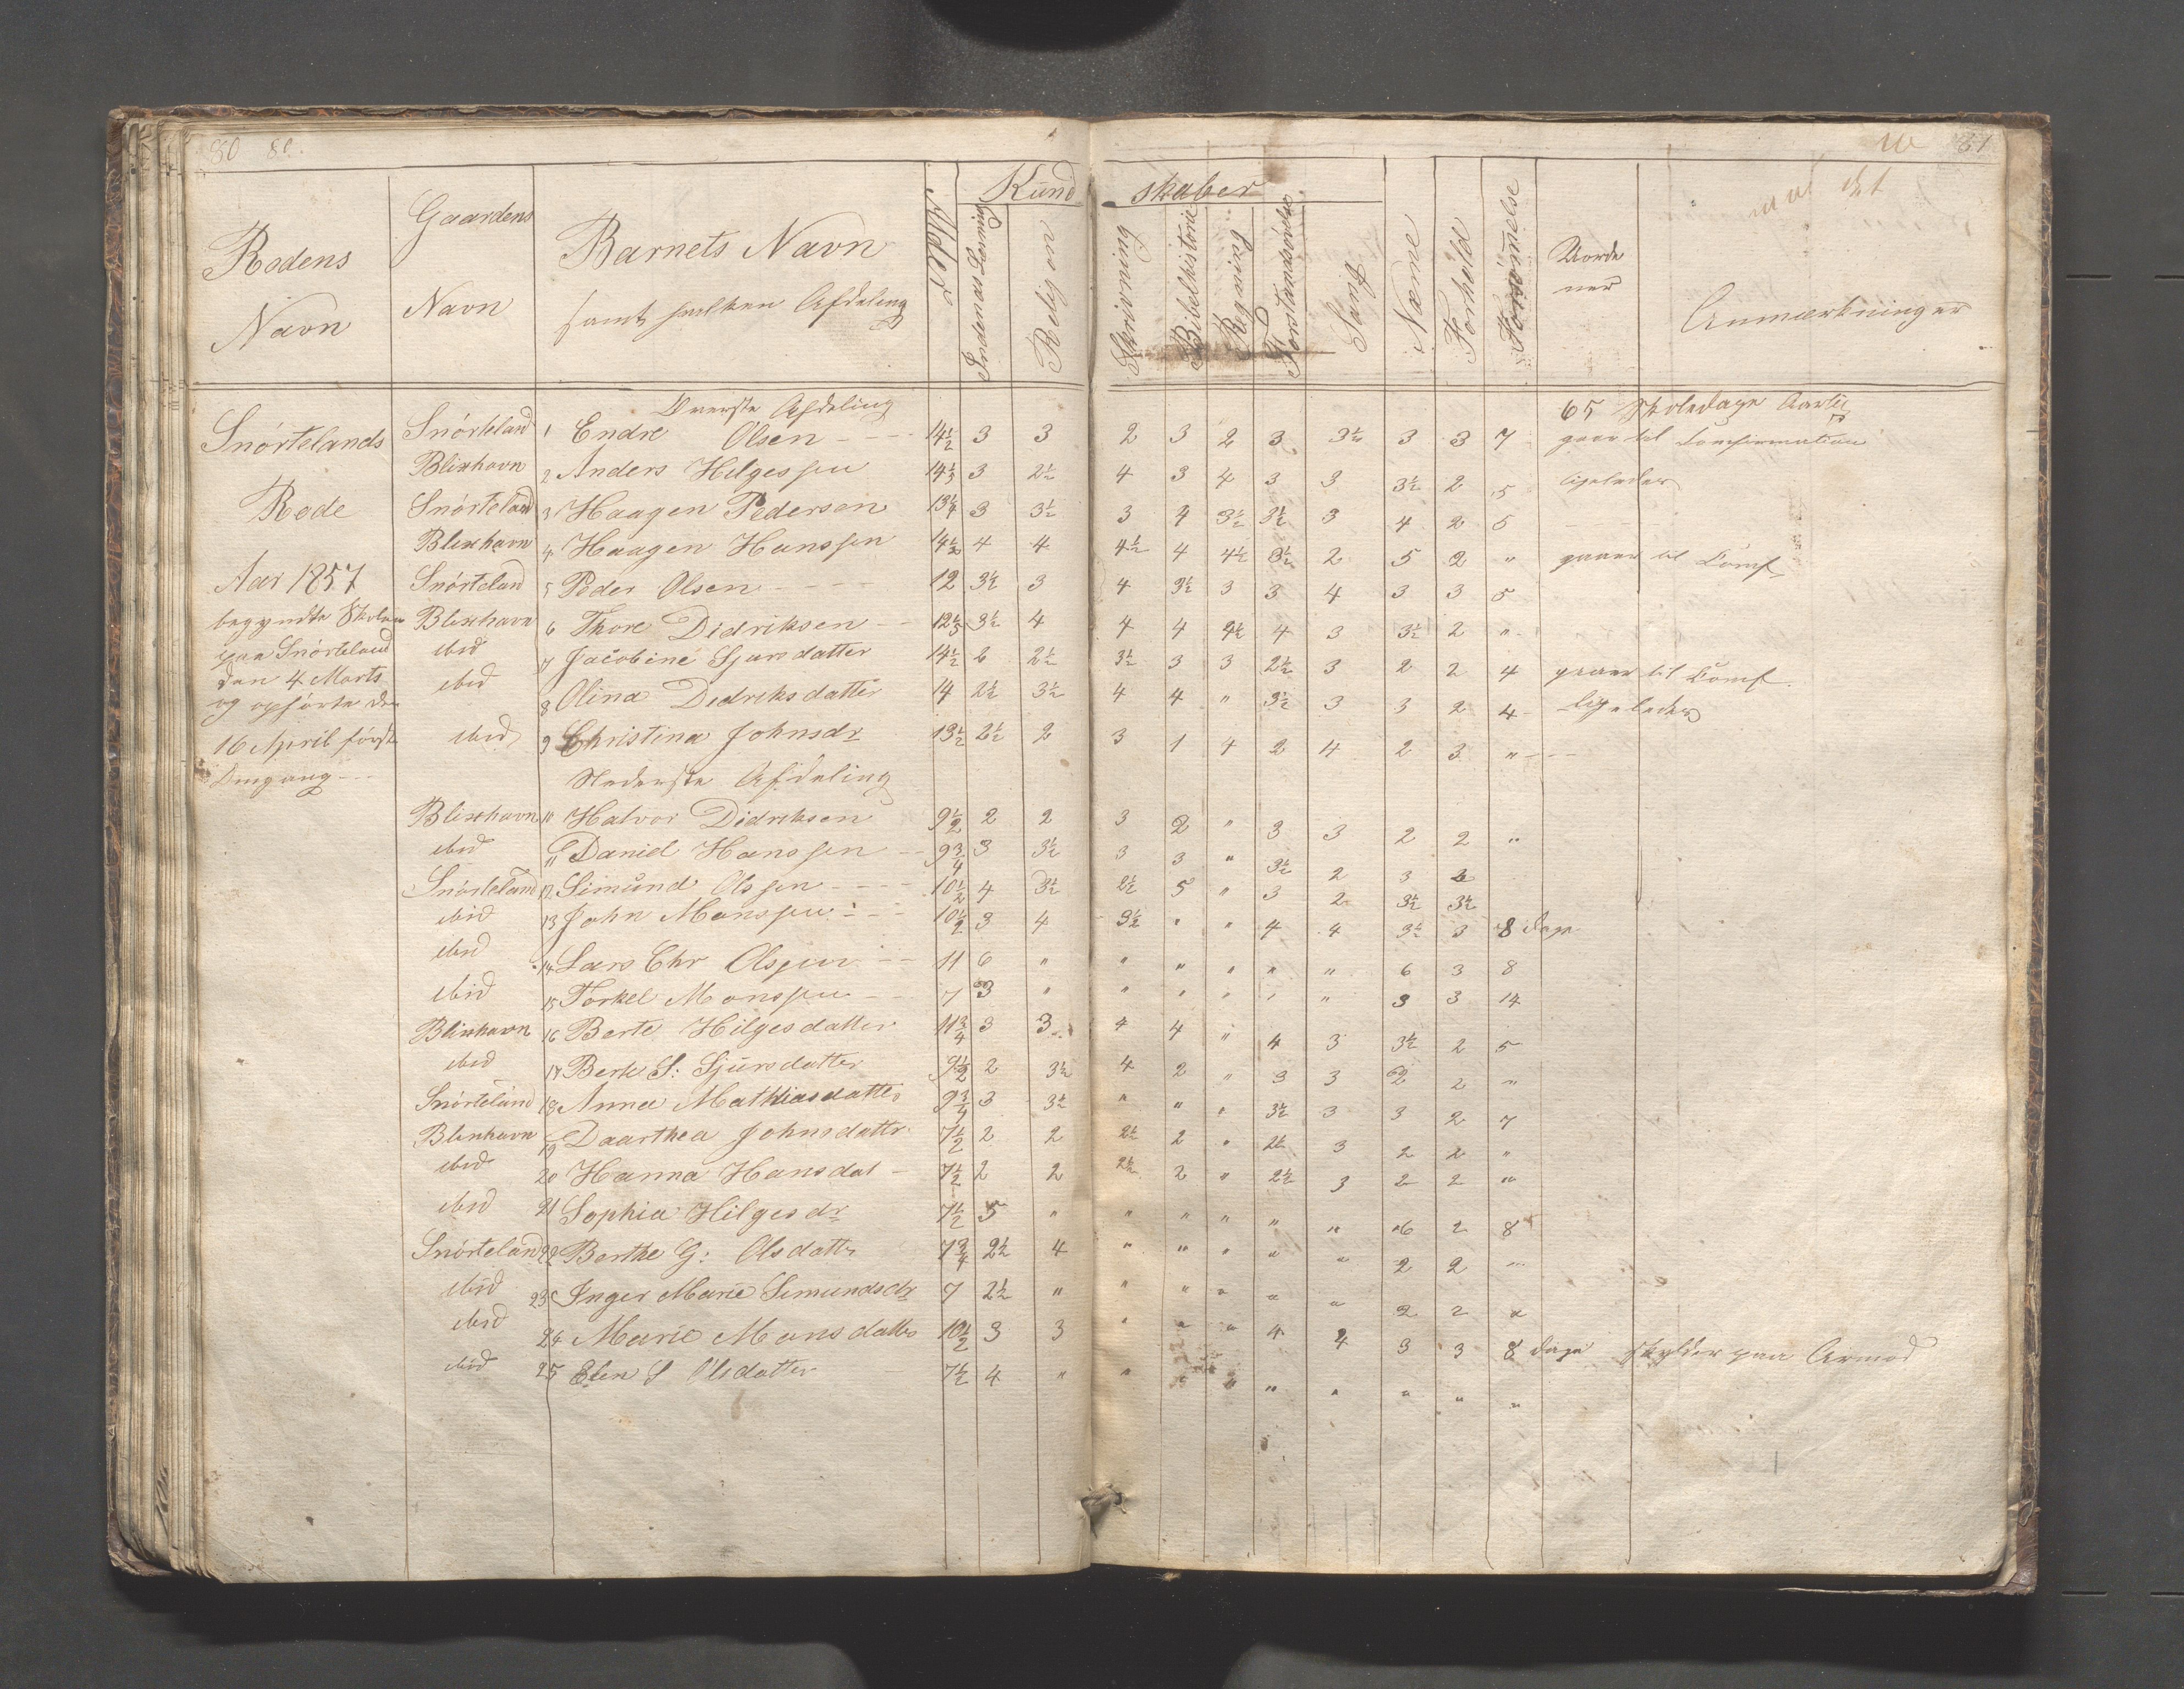 80 80. 81
Rodens Navn
Gaardens Navn
Barnets Navn
samt hvilken Afdeling
Alder
Kund skaber
Religion
Skrivning
Bibelhistorie
Regning
Forstandsøvelse
Sang
Næme
Forhold
Forsømmelse
Anmærkninger
Øverste Afdeling
65 Skoledage
Snørtelands Rode
Aar 1857
begyndte Skolen
paa Snørteland
den 4 Marts
og ophørte den
16 April første
Omgang
Snørteland 1 Endre Olsen 14½ 3 3 2 3 2 3 3½ 3 3 7 gaar til Confirmation
Blixhavn 2 Anders Hilgessen 14⅓ 3 2½ 4 3 4 3 3 3½ 2 5 ligeledes
Snørteland 3 Haagen Pedersen 13¼ 3 3½ 3 4 3½ 3½ 3 4 2 5
Blixhavn 4 Haagen Hanssen 14½ 4 4 4½ 4 4½ 3½ 2 5 2 " gaaer til Conf.
Snørteland 5 Peder Olsen 12 3½ 3 4 3½ 3 3 4 3 3 5
Blixhavn 6 Thore Didriksen 3½ 4 4 4 4½ 4 3 3½ 2 "
ibid 7 Jacobine Sjursdatter 14½ 2 2½ 3½ 3 3 2½ 3 2 2 4 gaaer til Conf.
ibid 8 Olina Dedriksdatter 14 2½ 3½ 4 4 " 3½ 3 3 2 4 ligeledes
ibid 9 Christina Johnsdr 13½ 2½ 2 3 1 4 2 4 2 3 "
Nederste Afdeling
Blixhavn 10 Halvor Didriksen 9½ 2 2 3 2 " 3 3 2 2 "
ibid 11 Daniel Hanssen 9¾ 3 3½ 3 3 " 3½ 2 3 2
Snørteland 12 Simund Olssen 10½ 4 3½ 2½ 5 " 3 2 3½ 3½
ibid 13 John Monssen 10½ 3 4 3½ " " 4 4 3½ 3 8 dage
ibid 14 Lars Chr Olssen 11 6 " " " " " " 6 3 8
ibid 15 Torkel Monssen 7 3 " " " " " " 3 3 14
Blixhavn 16 Berte Hilgesdatter 11¾ 3 3 4 4 " 4 3 3½ 2 5
ibid 17 Berte S: Sjursdatter 9½ 2 3½ 4 2 " 3 3 2 2 "
Snørteland 18 Anna Mathiasdatter 9¾ 3 3½ " " " 3½ 3 3 2 7
Blixhavn 19 Daarthea Johnsdattr 7½ 2 2 2½ 2 " 2½ 3 2 2 "
ibid 20 Hanna Hansdat 7½ 2 2 2½ 2 " 2½ 3 2 2 "
ibid 21 Sophia Hilgesdr 7½ 5 " " " " " " 6 2 8
Snørteland 22 Berthe G: Olsdattr 7¾ 2½ 4 " " " " " 2 2 "
ibid 23 Inger Marie Simundsdr 7 2½ " " " " " " 2 2 "
ibid 24 Marie Monsdatter 10½ 3 3 " " " 4 4 3 3 8 dage skylder paa Armod
ibid 25 Elen S Olsdatter 7½ 4 " " " " " " " " "